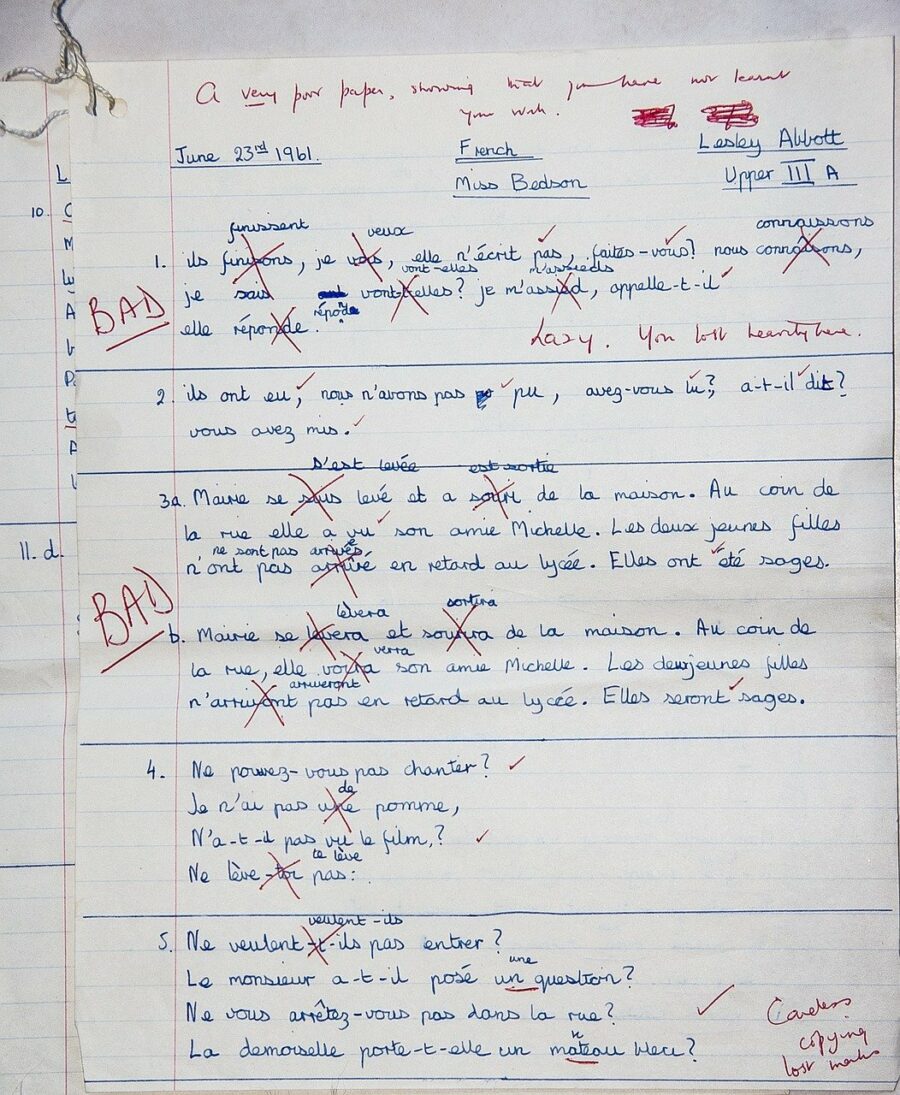 A very poor paper, showing that you have not learnt
your work.
June 23rd 1961. French Lesley Abbott
Miss Bedson Upper III A
L
10. C
M
A
P
A
11. d.
finissent veux connaissons
1. ils finisons, je vois, elle n'écrit pas, faites-vous? nous connaîsons,
vont-elles m'assieds
BAD
je sais vont-t-elles? je m'assied, appelle-t-il
répond
elle réponde.
Lazy. You lost heavily here.
2. ils ont eu, nous n'avons pas pu, avez-vous lu?, a-t-il dit?
vous avez mis.
s'est levée est sortie
3a. Mairie se suis levé et a souri de la maison. Au coin de
la rue elle a vu son amie Michelle. Les deux jeunes filles
ne sont pas arrivées
n'ont pas arrivé en retard au lycée. Elles ont été sages.
BAD
lèvera sortira
b. Mairie se levera et sourira de la maison. Au coin de
verra
la rue, elle voira son amie Michelle. Les deuxjeunes filles
arriveront
n'arrivont pas en retard au lycée. Elles seront sages.
4. Ne pouvez-vous pas chanter?
de
Je n'ai pas une pomme,
N'a-t-il pas vu le film,?
te lève
Ne lève-toi pas:
veulent-ils
5. Ne veulent-t-ils pas entrer?
une
Le monsieur a-t-il posé un question?
Ne vous arrêtez-vous pas dans la rue?
n
La demoiselle porte-t-elle un mateau bleu?
Careless
copying
lost marks